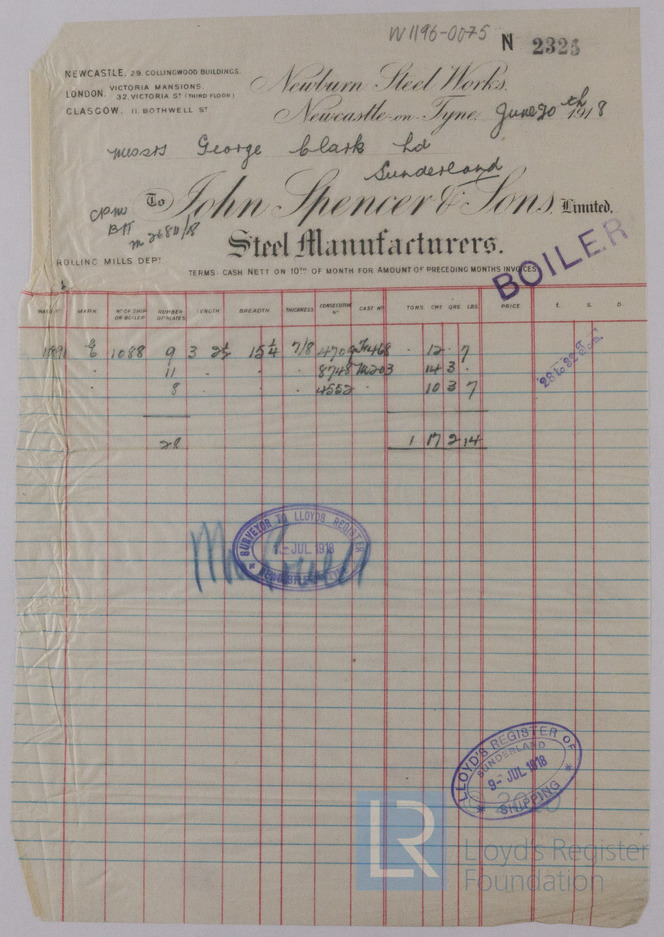 W1196-0075 N 2325
NEWCASTLE, 29, COLLINGWOOD BUILDINGS.
LONDON, VICTORIA MANSIONS,
32, VICTORIA ST (THIRD FLOOR)
GLASGOW, 11, BOTHWELL ST
Newburn Steel Works,
Newcastle-on-Tyne, June 20th 1918
Messrs George Clark Ld
Sunderland
To John Spencer & Sons, Limited,
Steel Manufacturers.
ROLLING MILLS DEPT
TERMS: CASH NETT ON 10TH OF MONTH FOR AMOUNT OF PRECEDING MONTHS INVOICES.
BOILER
MARK NO OF SHIP OR BOILER NUMBER OF PLATES LENGTH BREADTH THICKNESS CONSECUTIVE NO CAST NO TONS CWT QRS LBS PRICE £. S. D.
1088 9 3 2½ 15¼ 7/8 4709 468 12 . 7
. . 11 . . . 8748 203 14 3 .
. . 8 . . . 4552 . 10 3 7
28 1 17 2 14
SURVEYOR TO LLOYDS REGISTER
JUL 1918
NEWCASTLE
LLOYD'S REGISTER OF
SUNDERLAND
9- JUL 1918
SHIPPING
LR
Lloyd's Register
Foundation